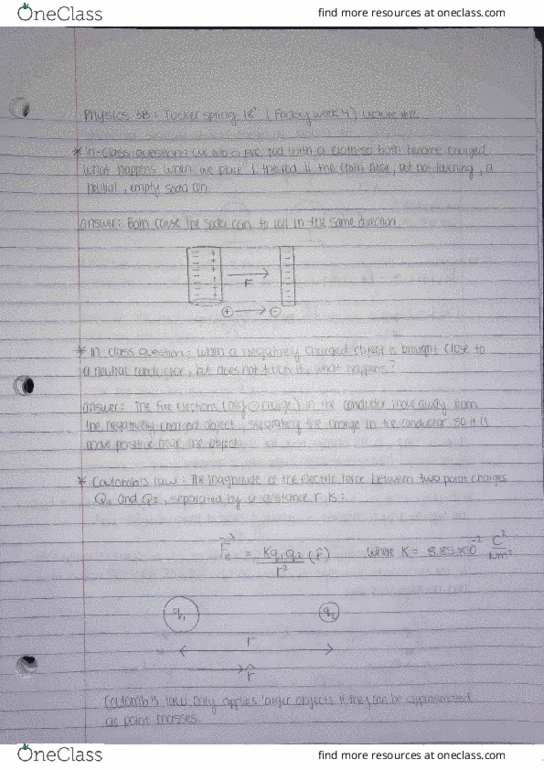 OneClass
find more resources at oneclass.com
Physics 3B: Tucker Spring 18' (Friday week 4) Lecture #12
* In-class question: we rub a PVC rod with a cloth so both become charged
what happens when we place i. the rod ii the cloth near, but not touching, a
neutral, empty soda can.
answer: Both cause the soda can to roll in the same direction.
F
+ → -
* In class question: when a negatively charged object is brought close to
a neutral conductor, but does not touch it, what happens?
answer: The free electrons ( charge) in the conductor move away from
the negatively charged object, separating the charge in the conductor so it is
more positive near the object.
* Coulomb's law: The magnitude of the electric force between two point charges
Q1 and Q2, separated by a distance r is:
Fe = Kq1q2 (r̂) where K = 8.85×10 C²
r² Nm²
q1 q2
r
r̂
Coulomb's law only applies larger objects if they can be approximated
as point masses.
OneClass
find more resources at oneclass.com